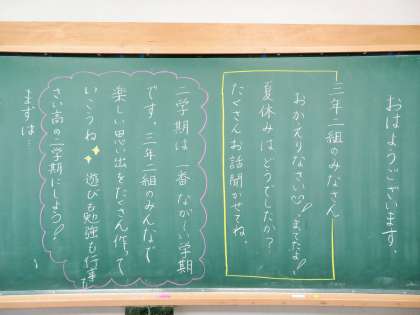 おはようございます。
三年二組のみなさん
おかえりなさい♡まってたよ!
夏休みはどうでしたか?
たくさんお話聞かせてね。
二学期は一番なが〜い学期
です。三年二組のみんなで
楽しい思い出をたくさん作って
いこうね 遊びも勉強も行事も
さい高の二学期にしよう!
まずは…